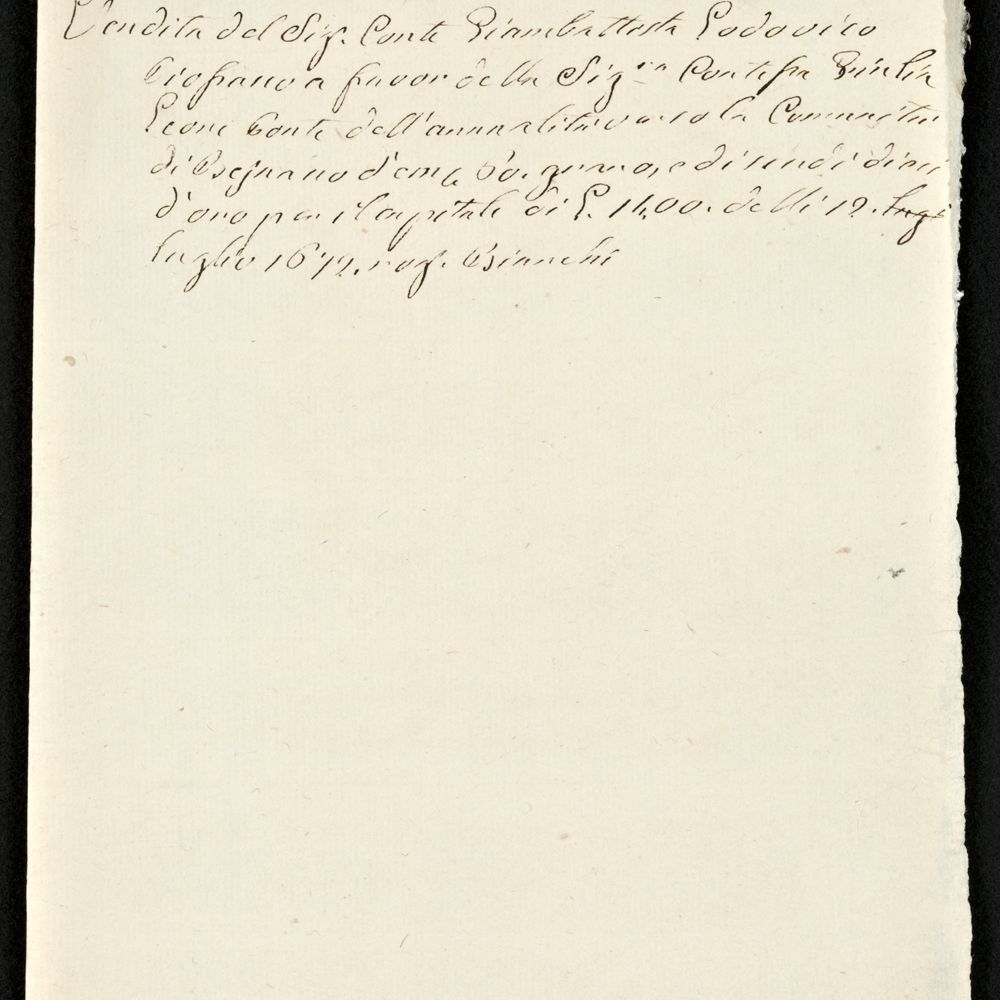 Vendita del Sig.r Conte Giambattista Lodovico
a favor della Sig.ra Contessa Giulia
Leoni Conte dell'annualità verso la Comunità
di d'em.e grano, e di scudi dieci
d'oro per il capitale di L. 1400. delli 12. Lugl
luglio 1672. rog. Bianchi